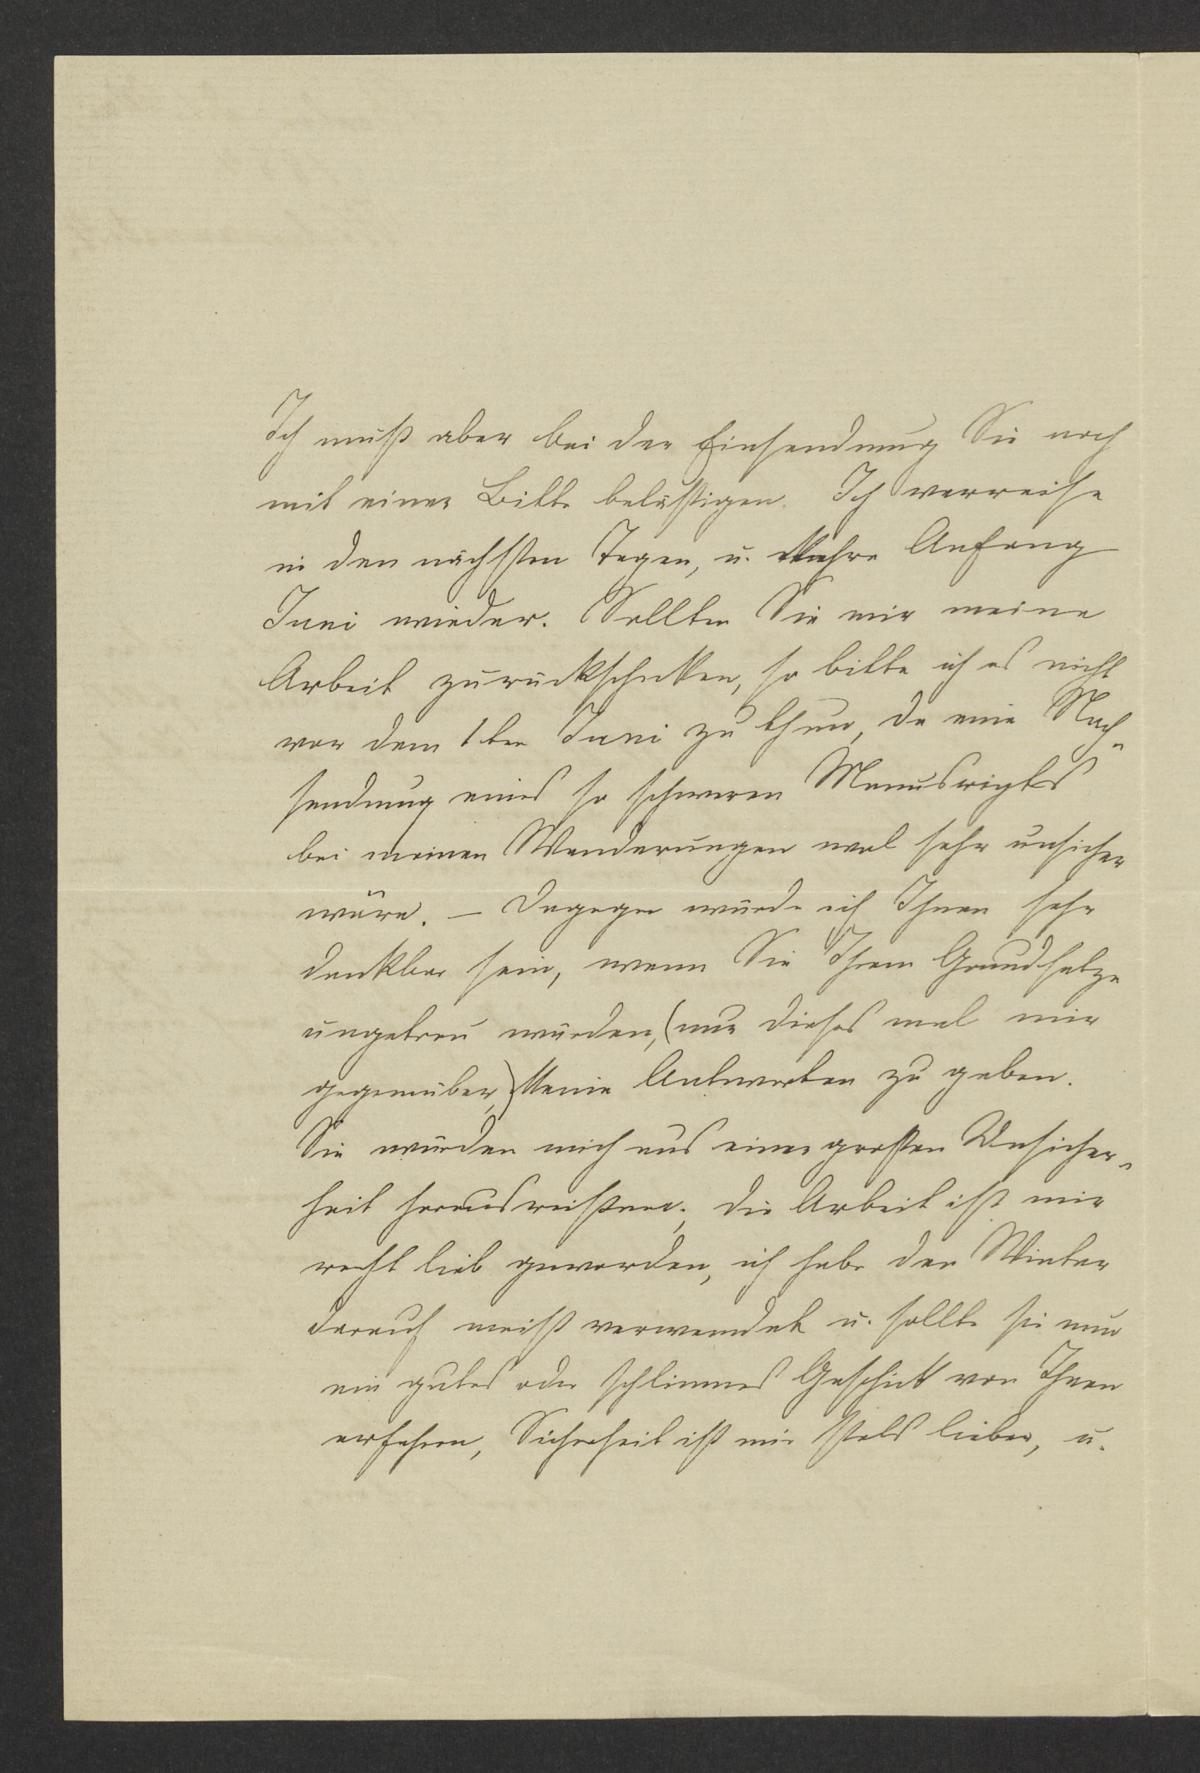 Ich muß aber bei der Einsendung Sie noch
mit einer Bitte belästigen. Ich verreise
in den nächsten Tagen, u. kehre Anfang
Juni wieder. Sollten Sie mir meine
Arbeit zurückschicken, so bitte ich es nicht
vor dem 1ten Juni zu thun, da eine Nach-
sendung eines so schweren Manuscriptes
bei meinen Wanderungen wol sehr unsicher
wäre. — Dagegen würde ich Ihnen sehr
dankbar sein, wenn Sie Ihrem Grundsatze
ungetreu würden, (nur dieses mal mir
gegenüber,) keine Antworten zu geben.
Sie würden mich aus einer großen Unsicher-
heit herausreißen. Die Arbeit ist mir
recht lieb geworden, ich habe den Winter
darauf meist verwendet u. sollte sie nun
ein gutes oder schlimmes Geschick von Ihnen
erfahren, Sicherheit ist mir stets lieber, u.